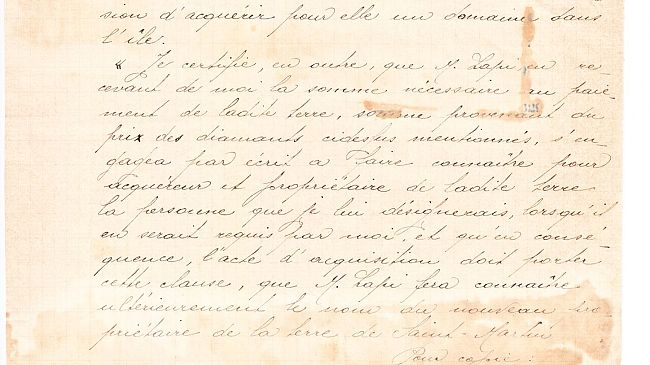 sion d'acquérir pour elle un domaine dans
l'île.
" Je certifie, en outre, que M. Lapi, en re-
cevant de moi la somme nécessaire au paie-
ment de ladite terre, somme provenant du
prix des diamants cidessus mentionnés, s'en-
gagea par écrit à faire connaître pour
acquéreur et propriétaire de ladite terre
la personne que je lui désignerais, lorsqu'il
en serait requis par moi, et qu'en consé-
quence, l'acte d'acquisition doit porter
cette clause, que M. Lapi fera connaître
ultérieurement le nom du nouveau pro-
priétaire de la terre de Saint-Martin
Pour copie :